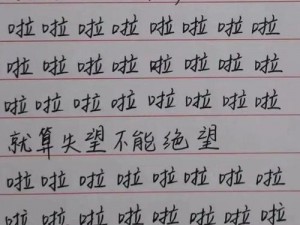 啦啦啦啦啦啦啦
啦啦啦啦啦啦啦
啦啦啦啦啦啦啦
就算失望不能绝望
啦啦啦啦啦啦啦
啦啦啦啦啦啦啦